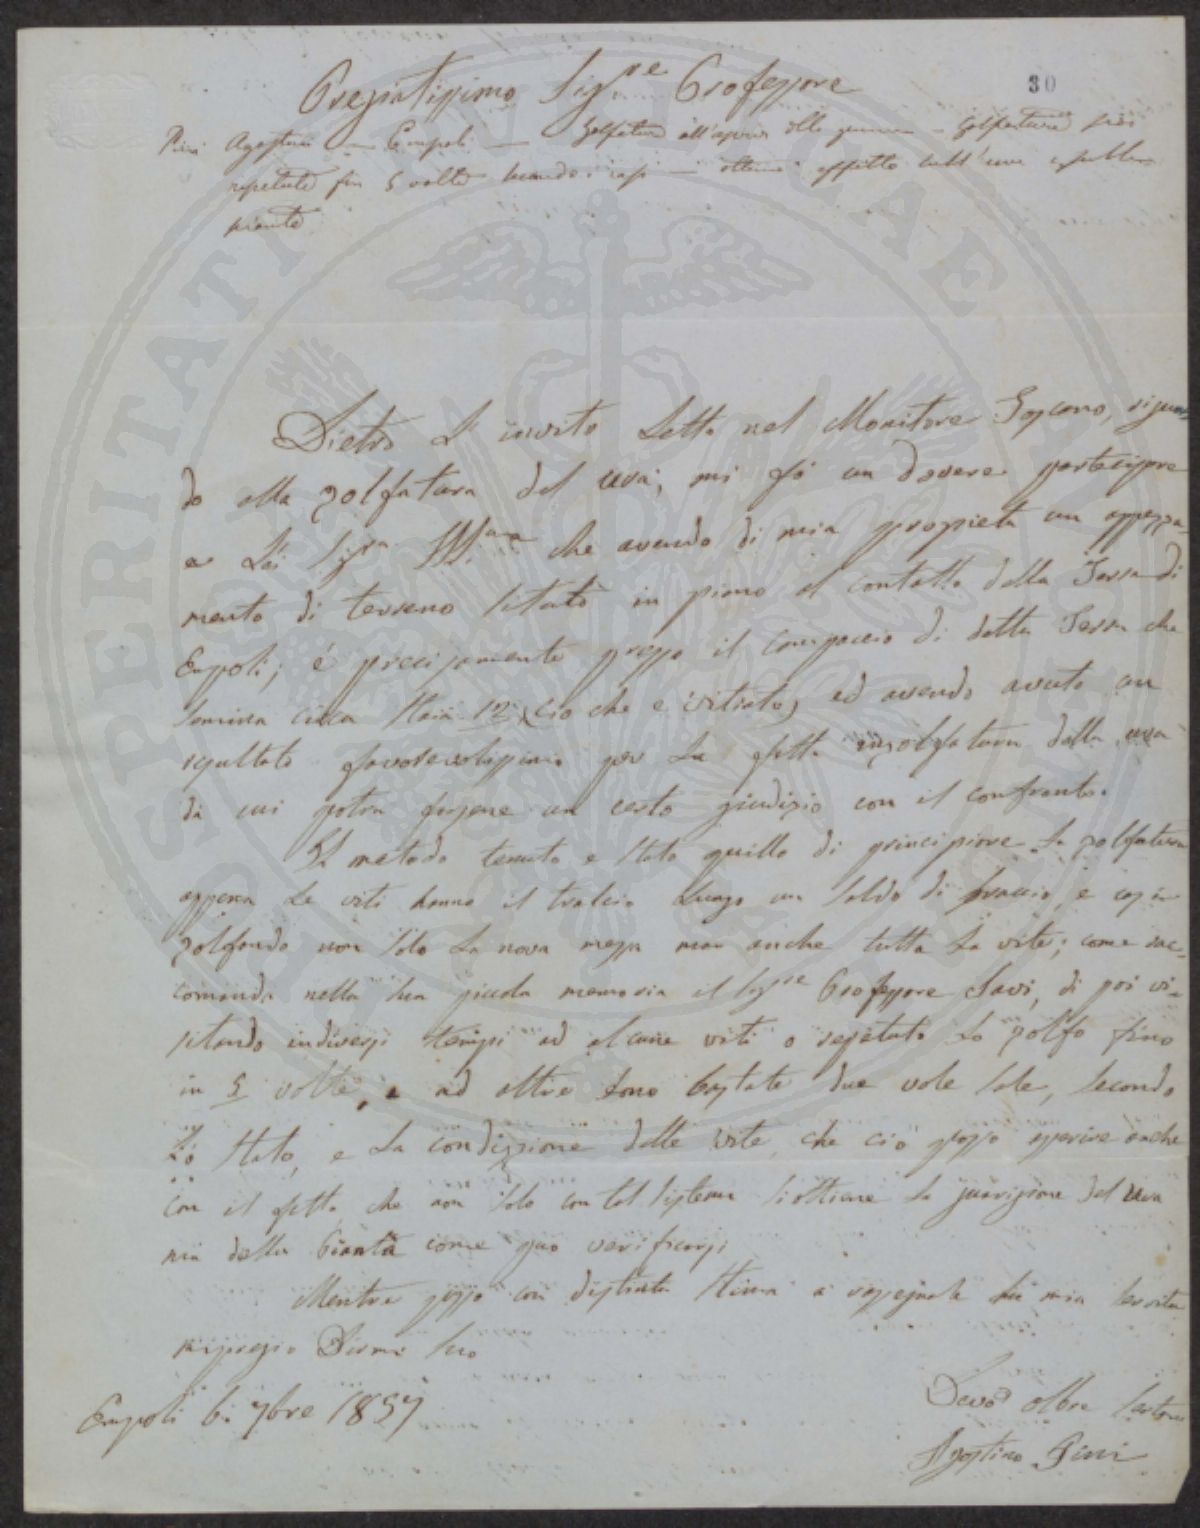 30
Pregiatissimo Sigre Professore
Pini Agostino — Empoli — Solfatura all'aprir delle gemme – solfature poi
repetute fin 5 volte secondo i casi — ottimo effetto sull'uva e sulle
piante
Dietro L invito Letto nel Monitore Toscano, riguar=
do alla zolfatura del uva; mi fò un dovere partecipare
a Lei Sigra Illma che avendo di mia propietà un appezza=
mento di terreno Situato in piano al contatto della Terra di
Empoli; é precisamente presso il Campaccio di detta Terra che
Semina circa Staia 12 (ció che e vitiato) ed avendo avuto un
resultato favorevolissimo per La fatta inzolfatura della uva
da cui potra farsene un certo giudizio con il confronto.
Il metodo tenuto e Stato quello di principiare La zolfatura
appena Le viti hanno il tralcio Lungo un Soldo di braccio, e cosi
zolfando non Solo La nova messa ma anche tutta La vite; come rac=
comanda nella Sua piccola memoria il Sigre Professore Savi, di poi vi=
sitando indiversi tempi ad alcune viti o repetuto Lo zolfo fino
in 5 volte, e ad altre Sono bastate due vole Sole, Secondo
Lo Stato, e La condizione delle vite, che ció posso asserire anche
con il fatto che non Solo con tal Sistema Si ottiene La guarigione del Uva
ma della Pianta come puo verificarsi
Mentre passo con distinta Stima a rassegnarle La mia Servitu
mi pregio Dirmi Suo
Empoli 6: 7bre 1857
Devo obbo Servtore
Agostino Pini